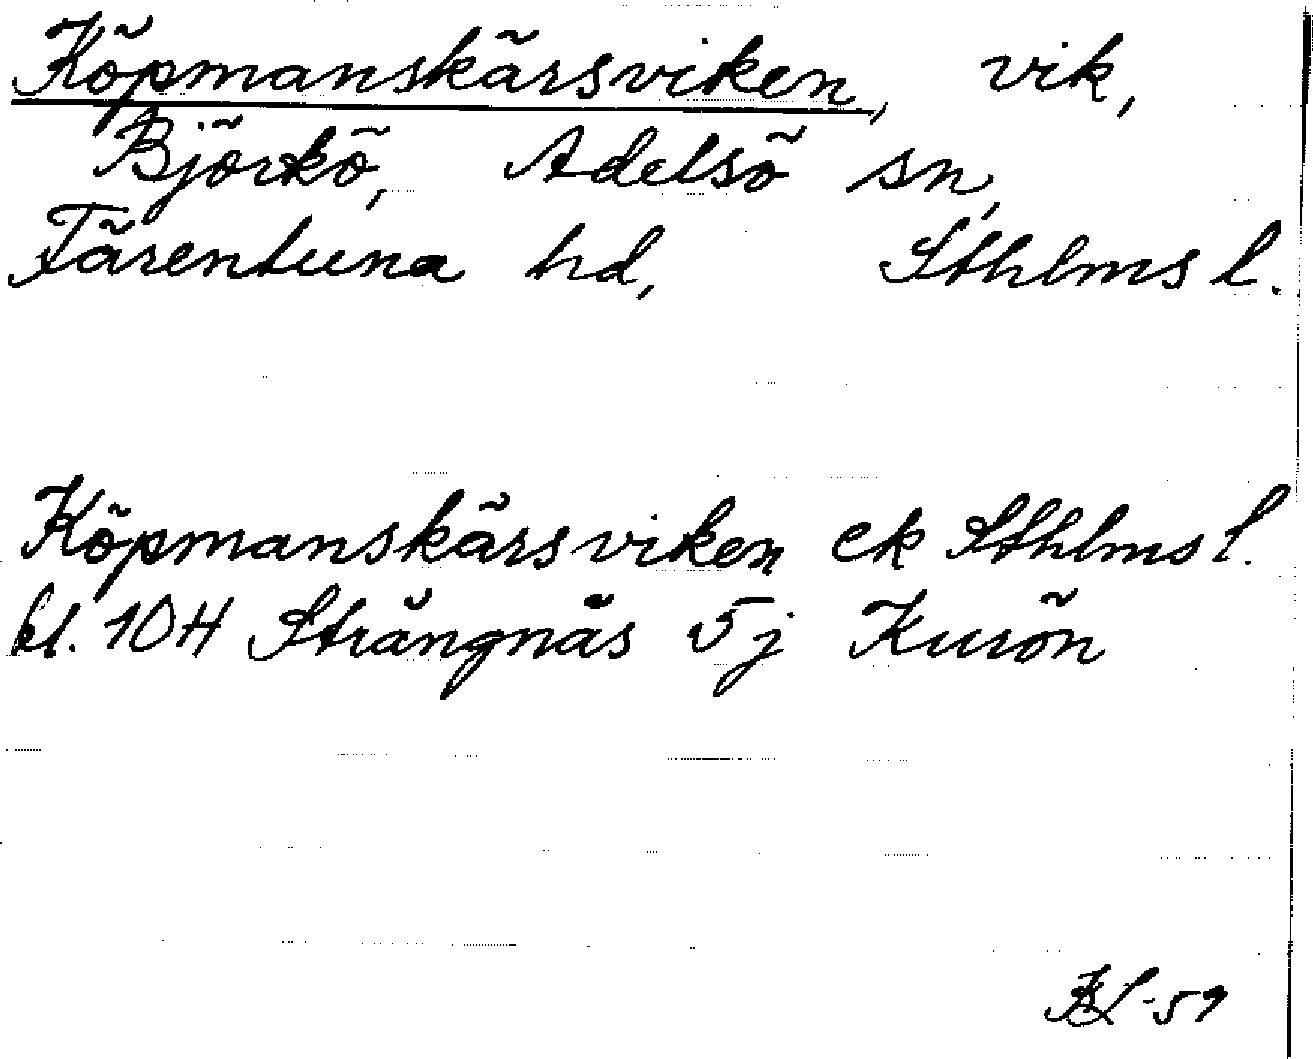 Köpmanskärsviken, vik,
Björkö, Adelsö sn,
Färentuna hd, Sthlms l.
Köpmanskärsviken ek Sthlms l.
bl. 10H Strängnäs 5j Kurön